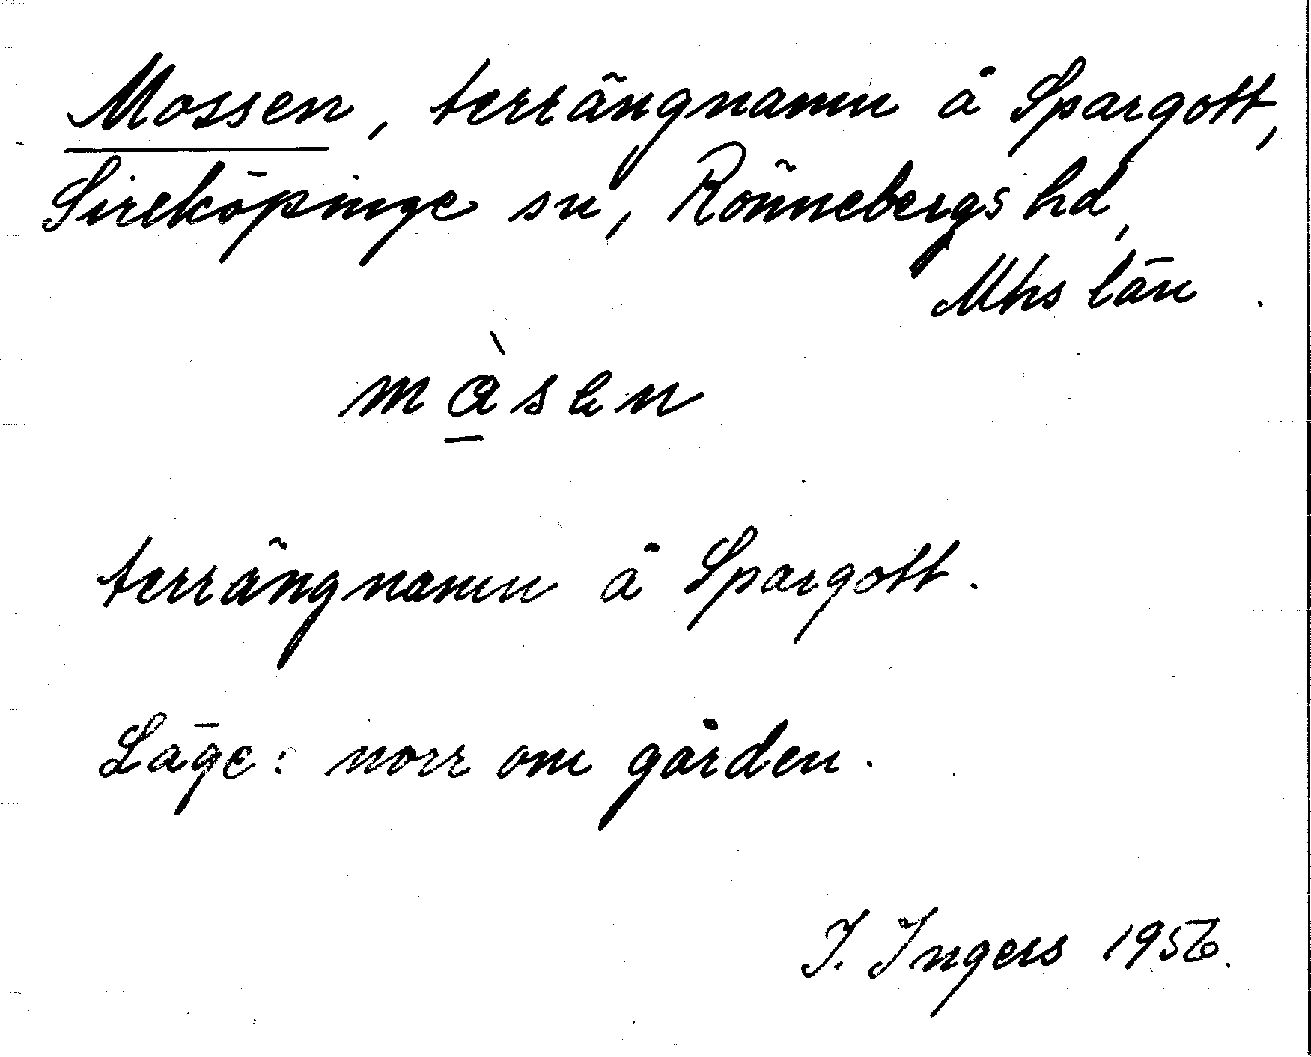 Mossen, terrängnamn å Spargott,
Sireköpinge sn, Rönnebergs hd,
Mhs län
måsen
terrängnamn å Spargott.
Läge: norr om gården.
I. Ingers 1956.